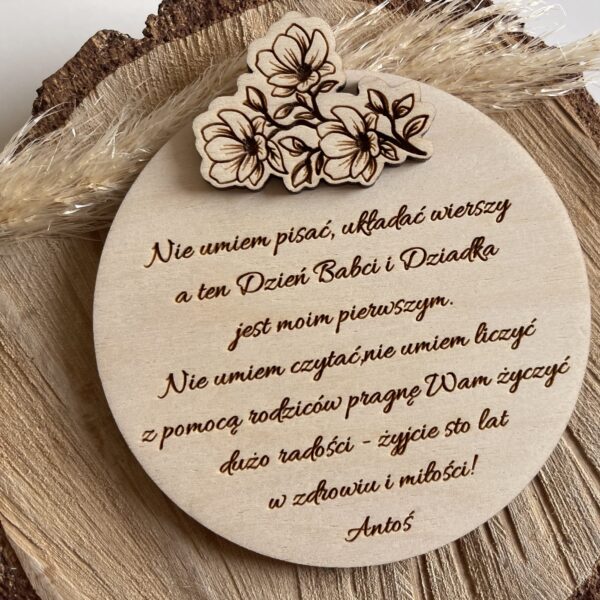 Nie umiem pisać, układać wierszy
a ten Dzień Babci i Dziadka
jest moim pierwszym.
Nie umiem czytać,nie umiem liczyć
z pomocą rodziców pragnę Wam życzyć
dużo radości - żyjcie sto lat
w zdrowiu i miłości!
Antoś